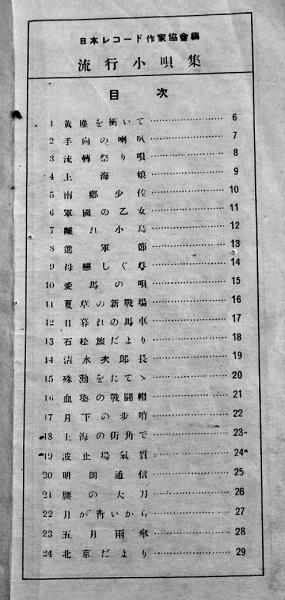 日本レコード作家協會編
流行小唄集
目次
1 黃塵を衝いて 6
2 手向の喇叭 7
3 流轉祭り唄 8
4 上海娘 9
5 南鄕少佐 10
6 軍國の乙女 11
7 離れ小島 12
8 進軍節 13
9 母戀しぐれ 14
10 愛馬の唄 15
11 夏草の新戰場 16
12 日暮れの馬車 17
13 石松旅だより 18
14 淸水次郞長 19
15 殊勳をたてゝ 20
16 血染の戰鬪帽 21
17 月下の步哨 22
18 上海の街角で 23
19 波止場氣質 24
20 明朗通信 25
21 の大刀 26
22 月が靑いから 27
23 五月雨傘 28
24 北京だより 29